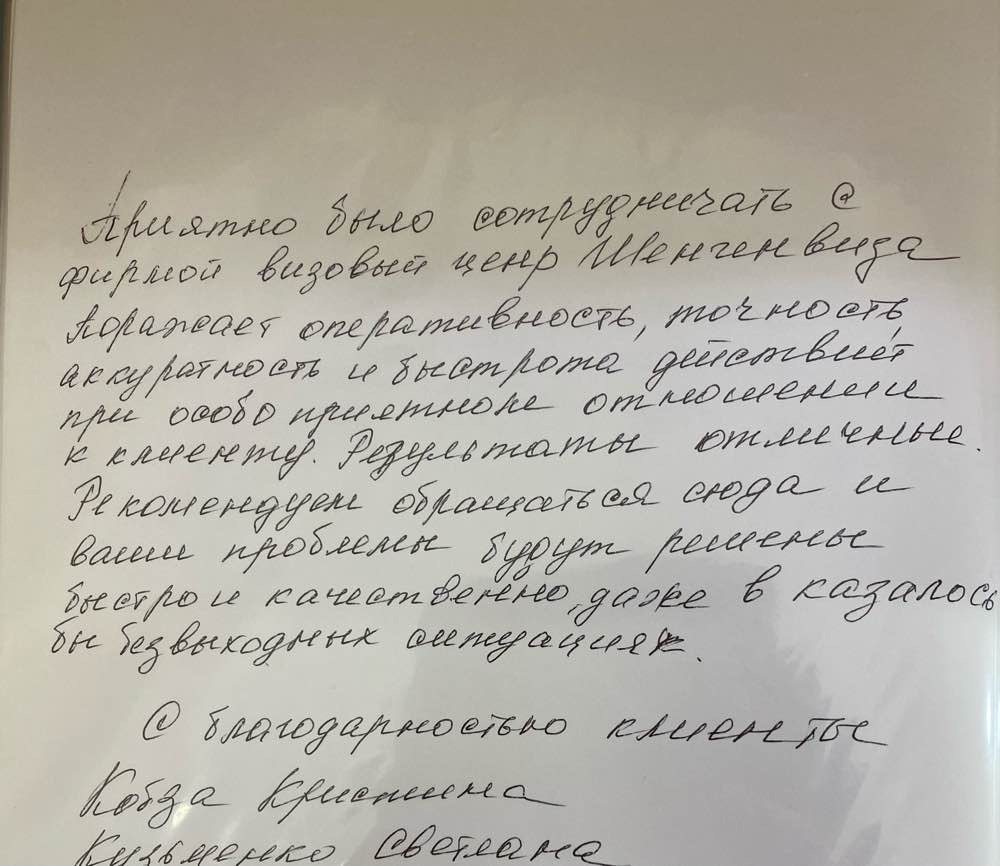 Приятно было сотрудничать с
фирмой визовый ценр Шенген виза
Поражает оперативность, точность,
аккуратность и быстрота действиет
при особо приятном отношении
к клиенту. Результаты отличные.
Рекомендуем обращаться сюда и
ваши проблемы будут решены
быстро и качественно, даже в казалось
бы безвыходных ситуациях.
С благодарностью клиенты
Кобза Кристина
Кузьменко Светлана